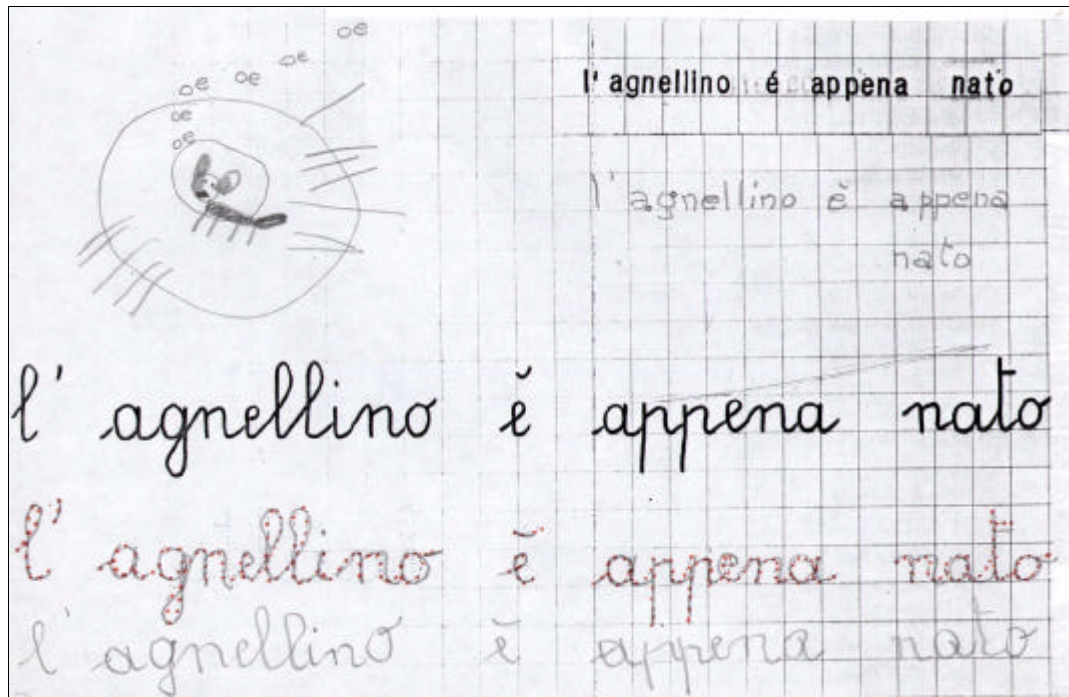 oe
oe
oe
oe
oe
oe
l' agnellino é appena nato
l' agnellino è appena
nato
l' agnellino ĕ appena nato
l' agnellino ĕ appena nato
l' agnellino è appena nato